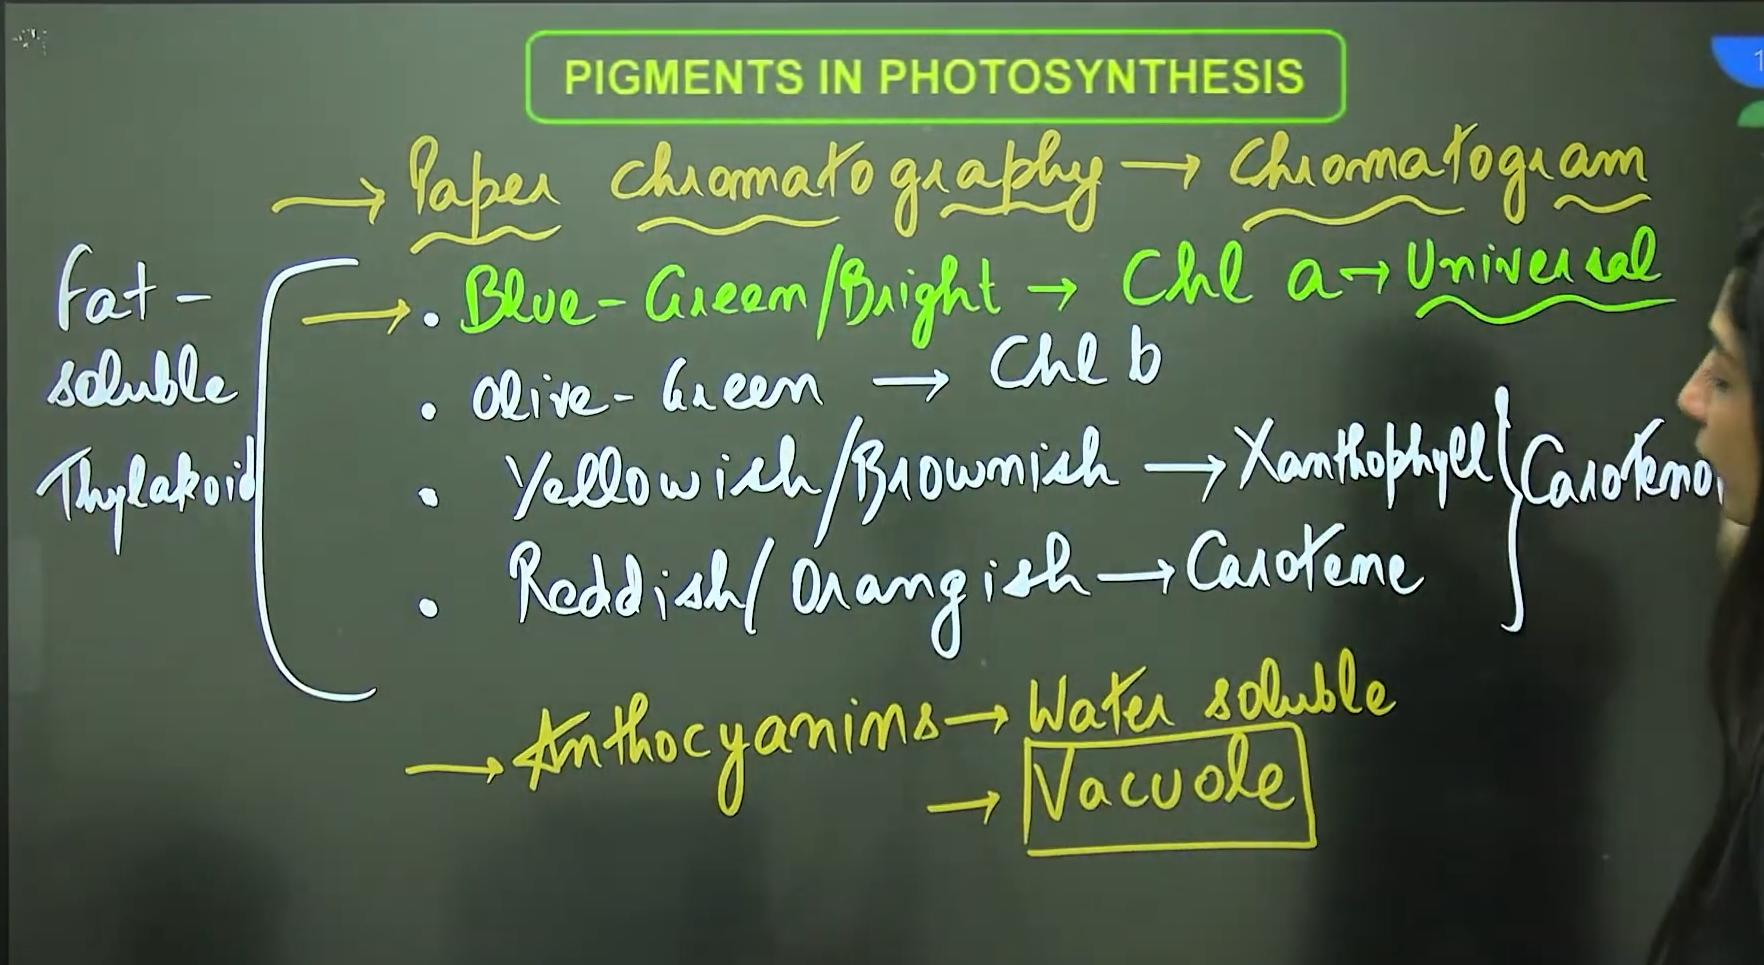 PIGMENTS IN PHOTOSYNTHESIS
→ Paper chromatography → Chromatogram
Fat-soluble Thylakoid
→ • Blue-Green/Bright → Chl a → Universal
• Olive-Green → Chl b
• Yellowish/Brownish → Xanthophyll
• Reddish/Orangish → Carotene
} Caroteno
→ Anthocyanins → Water soluble
→ Vacuole
1